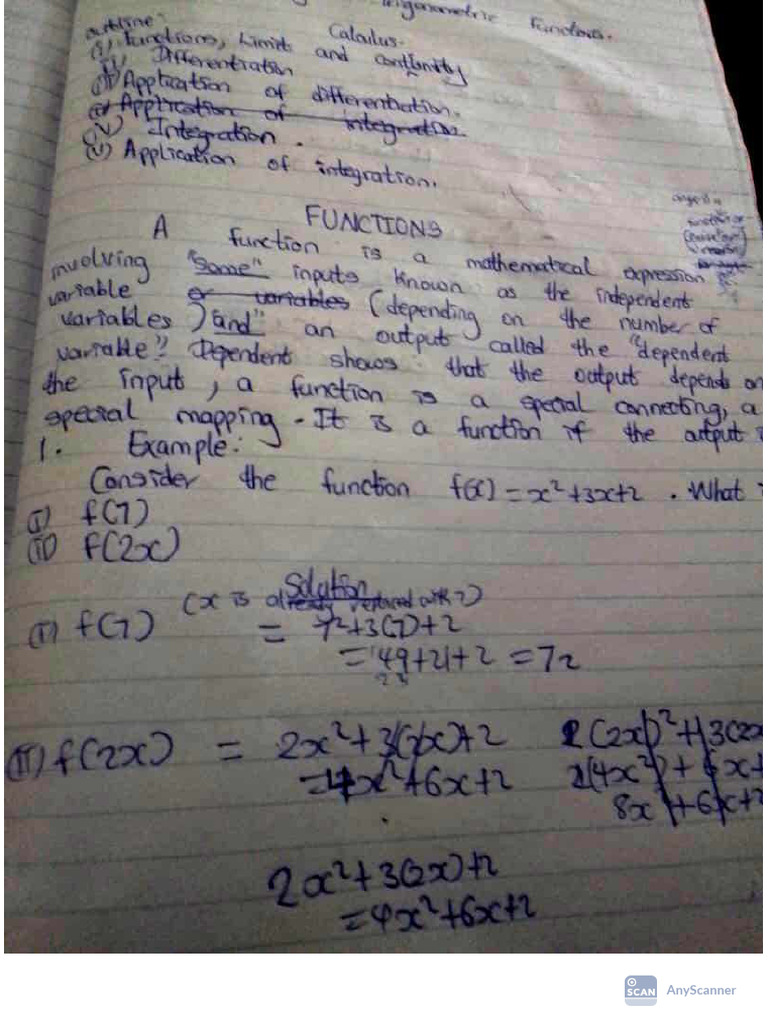 Trigonometric Functions.
outline: Calculus.
(i) Functions, Limits and continuity
(ii) Differentiation
(iii) Application of differentiation.
Application of integration
(iv) Integration.
(v) Application of integration.
FUNCTIONS
A function is a mathematical expression
involving "some" inputs known as the independent
variable or variables (depending on the number of
variables) "and" an output called the "dependent
variable". Dependent shows that the output depends on
the input, a function is a special connecting, a
special mapping. It is a function if the output
1. Example:
Consider the function f(x) = x²+3x+2. What
(i) f(7)
(ii) f(2x)
Solution
(x is already replaced with 7)
(i) f(7) = 7²+3(7)+2
= 49+21+2 = 72
(ii) f(2x) = 2x²+3(2x)+2 2(2x)²+3(2x
=4x²+6x+2 2(4x²)+6x+
8x +6x+2
2x²+3(2x)+2
=4x²+6x+2
SCAN AnyScanner